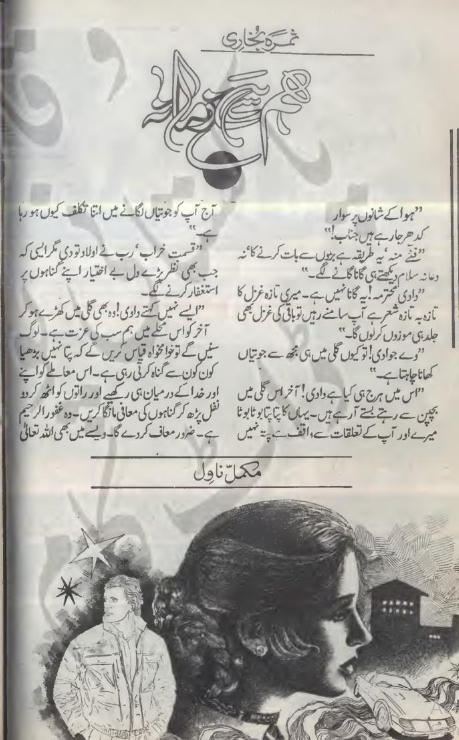 ثمرہ بخاری
ہم سے ہے زمانہ
"ہوا کے شانوں پر سوار
کدھر جا رہے ہیں جناب!"
"فٹے منہ' یہ طریقہ ہے بڑوں سے بات کرنے کا' نہ
دعا نہ سلام دیکھتے ہی گانا گانے لگے۔"
"دادی محترمہ! یہ گانا نہیں ہے۔ میری تازہ غزل کا
تازہ بہ تازہ شعر ہے آپ سامنے رہیں تو باقی کی غزل بھی
جلد ہی موزوں کرلوں گا۔"
"وے جوادی! تو کیوں گلی میں ہی مجھ سے جوتیاں
کھانا چاہتا ہے۔"
"اس میں ہرج ہی کیا ہے دادی! آخر اس گلی میں
بچپن سے رہتے بستے آرہے ہیں۔ یہاں کا پتا پتا بوٹا بوٹا
میرے اور آپ کے تعلقات سے واقف ہے پتہ نہیں
آج آپ کو جوتیاں لگانے میں اتنا تکلف کیوں ہو رہا
ہے۔"
"قسمت خراب' رب نے اولاد تو دی مگر ایسی کہ
جب بھی نظر پڑے دل بے اختیار اپنے گناہوں پر
استغفار کرنے لگے۔"
"ایسے نہیں کہتے دادی! وہ بھی گلی میں کھڑے ہو کر
آخر کو اس محلے میں ہم سب کی عزت ہے۔ لوگ
سنیں گے تو خوامخواہ قیاس کریں گے کہ پتا نہیں بڑھیا
کون کون سے گناہ کرتی رہی ہے۔ اس معاملے کو اپنے
اور خدا کے درمیان ہی رکھیے اور راتوں کو اٹھ کر دو
نفل پڑھ کر گناہوں کی معافی مانگا کریں۔ وہ غفور الرحیم
ہے۔ ضرور معاف کردے گا۔ ویسے میں بھی اللہ تعالیٰ
مکمل ناول